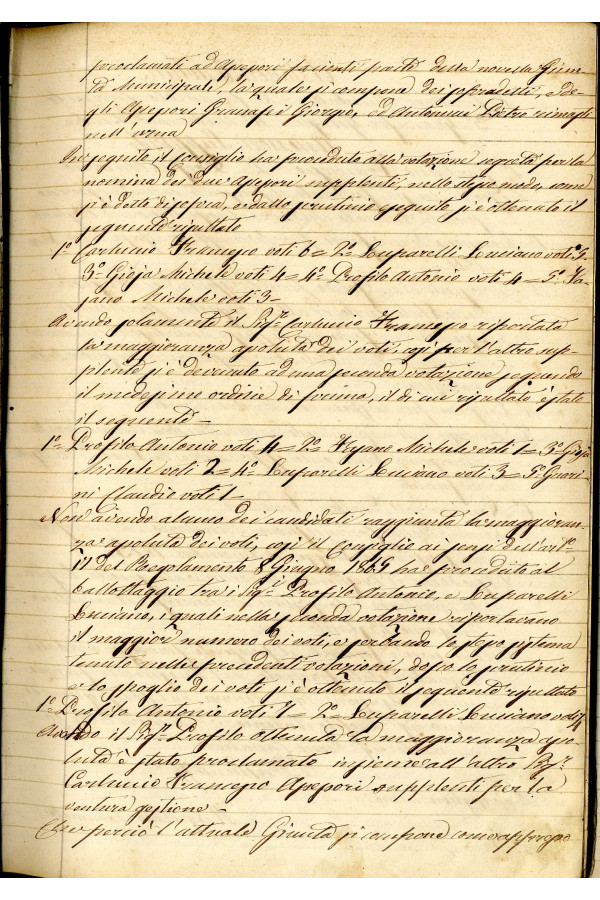 proclamati ad Assessori facienti parte della novella Giun-
ta Municipale, la quale si compone dei sopradetti, e de-
gli Assessori Granafei Giorgio, ed Antonucci Pietro rimasti
nell'urna
In seguito il Consiglio ha proceduto alla votazione segreta per la
nomina dei due Assessori supplenti, nello stesso modo, come
si è detto di sopra, e dallo scrutinio eseguito si è ottenuto il
seguente risultato
1º Carluccio Francesco voti 6 = 2º Luparelli Luciano voti
3º Gioja Michele voti 4 = 4º Profilo Antonio voti 4 = 5º Fa-
jano Michele voti 3 -
Avendo solamente il Sigr Carluccio Francesco riportata
la maggioranza assoluta dei voti, così per l'altro sup-
plente si è devenuto ad una seconda votazione seguendo
il medesimo ordine di prima, il di cui risultato è stato
il seguente -
1º Profilo Antonio voti 4 = 2º Fajano Michele voti 1 = 3º Gioja
Michele voti 2 = 4º Luparelli Luciano voti 3 = 5º Guari-
ni Claudio voti 1 -
Non avendo alcuno dei candidati raggiunta la maggioran-
za assoluta dei voti, così il Consiglio ai sensi dell'artº
del Regolamento 8 Giugno 1865 ha proceduto al
ballottaggio tra i Sigri Profilo Antonio, e Luparelli
Luciano, i quali nella seconda votazione riportavano
il maggior numero dei voti, e serbando lo stesso sistema
tenuto nelle precedenti votazioni, dopo lo scrutinio
e lo spoglio dei voti si è ottenuto il seguente risultato
1º Profilo Antonio voti 7 = 2º Luparelli Luciano voti 4
Avendo il Sigr Profilo ottenuta la maggioranza asso-
luta è stato proclamato insieme all'altro Sigr
Carluccio Francesco Assessori supplenti per la
ventura gestione -
Che perciò l'attuale Giunta si compone come appresso